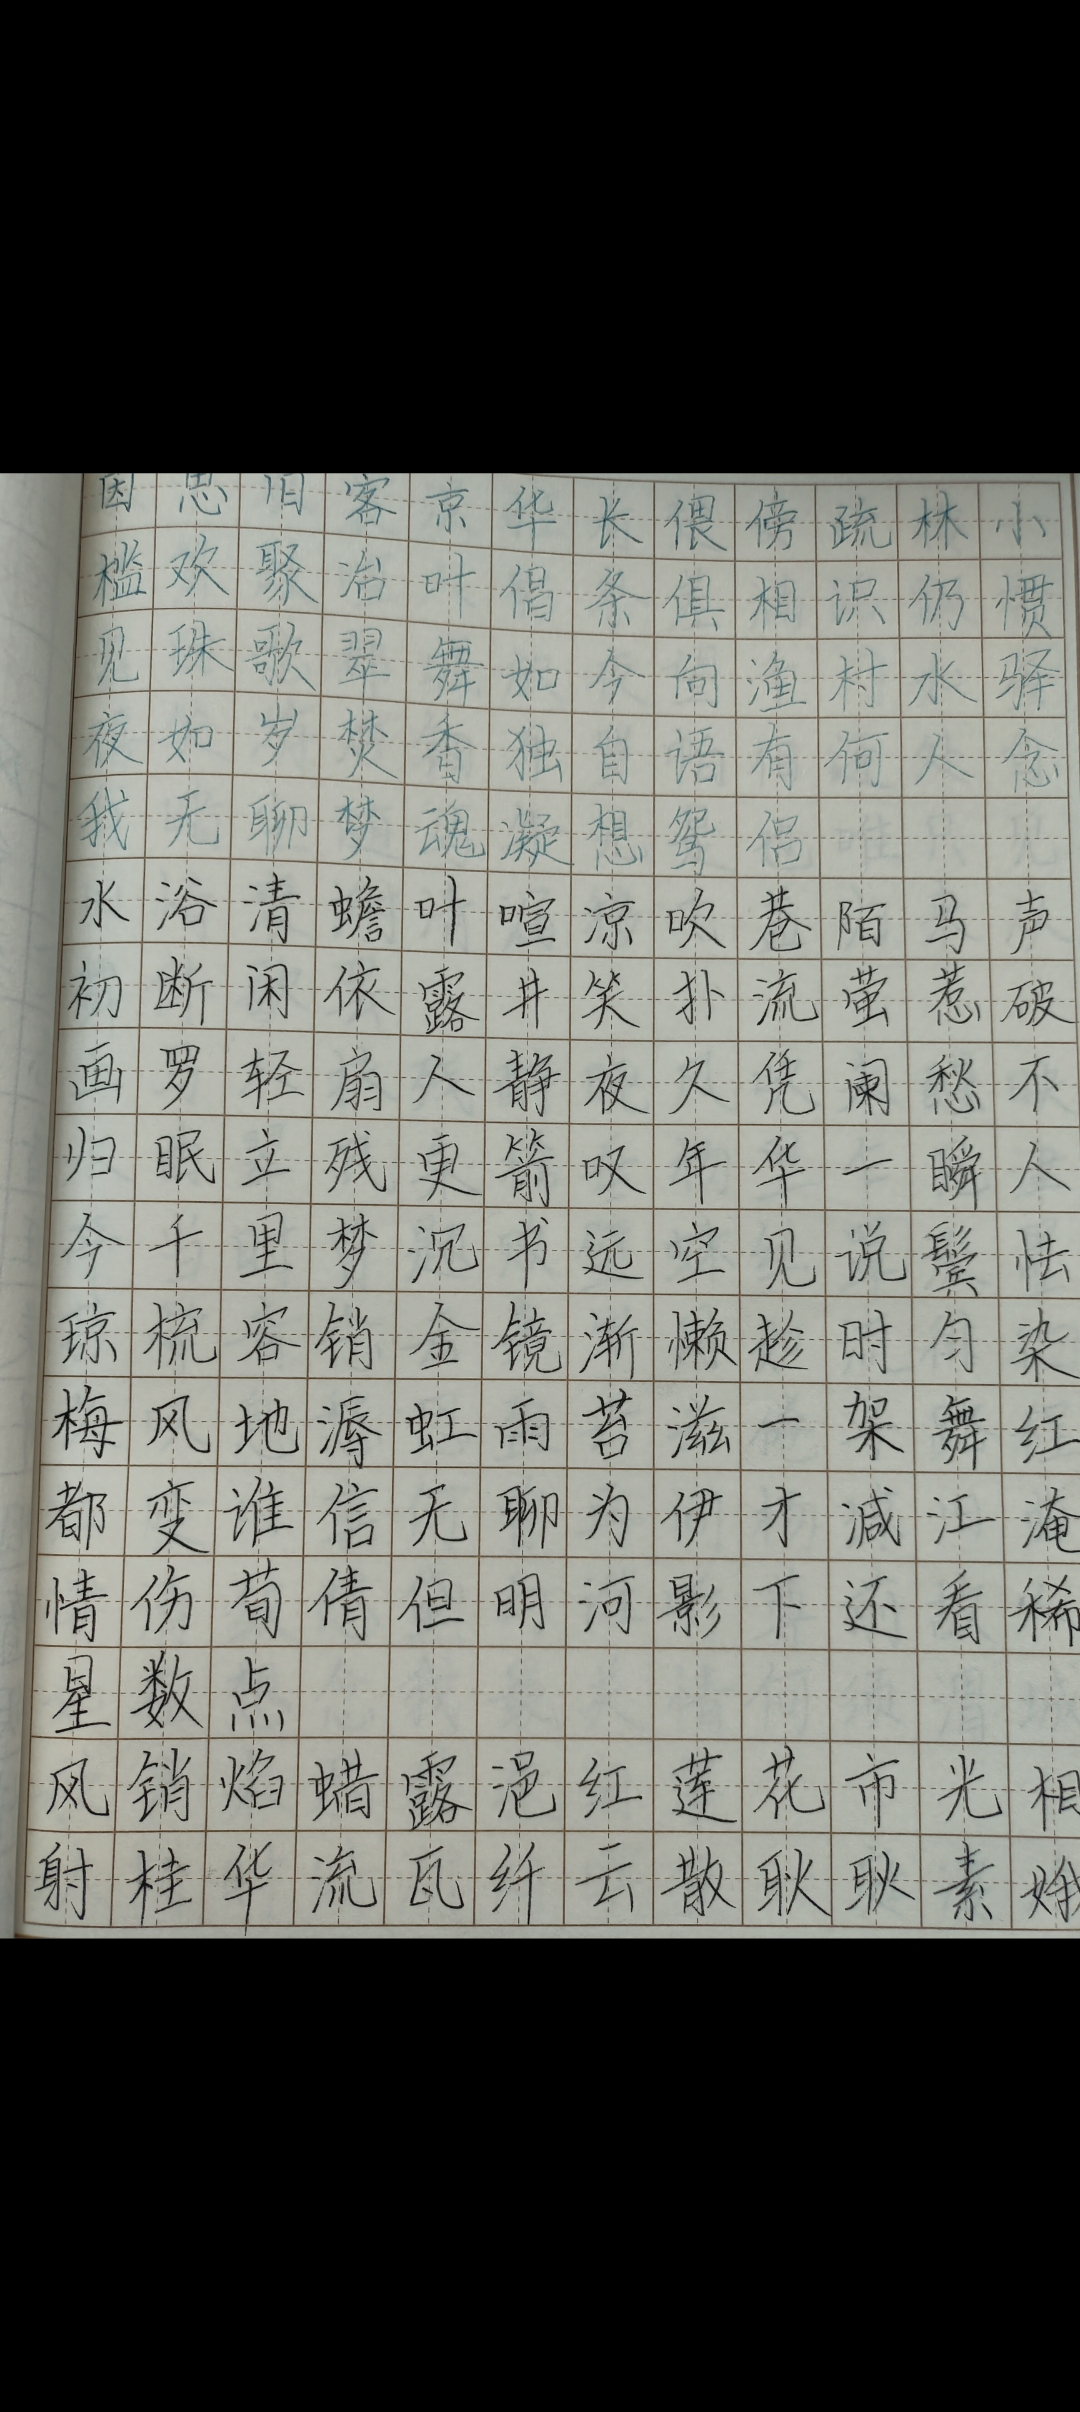 因思旧客京华长偎傍疏林小
槛欢聚冶叶倡条俱相识仍惯
见珠歌翠舞如今向渔村水驿
夜如岁焚香独自语有何人念
我无聊梦魂凝想鸳侣
水浴清蟾叶喧凉吹巷陌马声
初断闲依露井笑扑流萤惹破
画罗轻扇人静夜久凭阑愁不
归眠立残更箭叹年华一瞬人
今千里梦沉书远空见说鬓怯
琼梳容销金镜渐懒趁时匀染
梅风地溽虹雨苔滋一架舞红
都变谁信无聊为伊才减江淹
情伤荀倩但明河影下还看稀
星数点
风销焰蜡露浥红莲花市光相
射桂华流瓦纤云散耿耿素娥